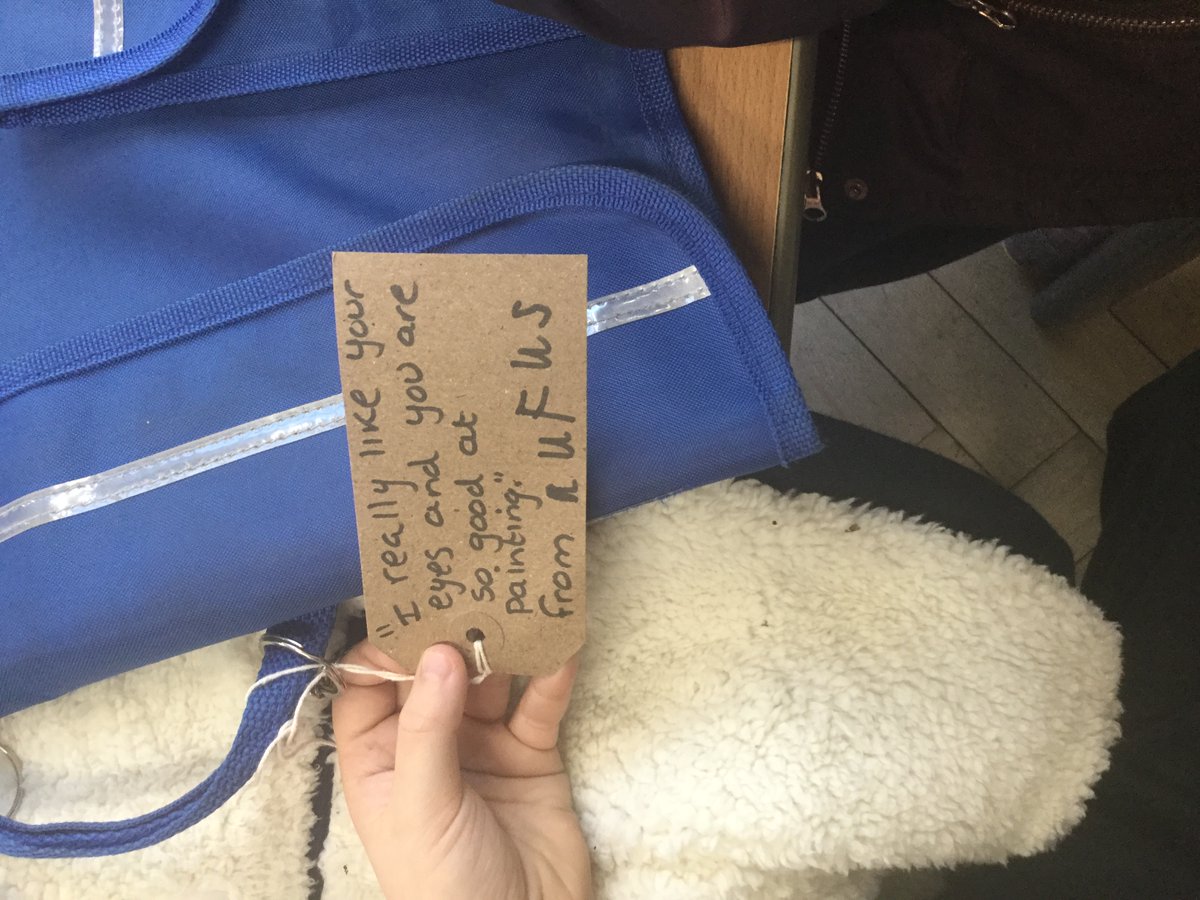 "I really like your
eyes and you are
so good at
painting."
from RUFUS